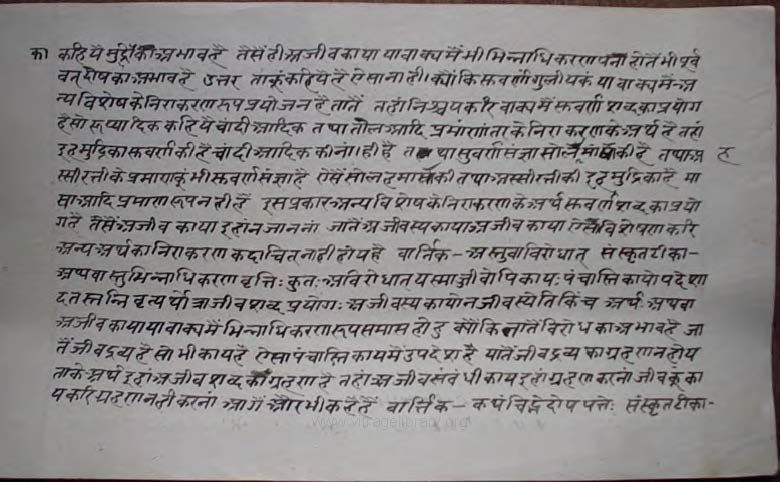 का कहिये मुद्रीका अभाव है तैसें ही अजीवकाया या वाक्य मैं भी भिन्नाधिकरणपना होतैं भी पूर्व
वत् दोष का अभाव है उत्तर ताकूं कहिये है ऐसा नाही क्योंकि सवर्णांगुलीयकं या वाक्य मैं अ
न्य विशेष के निराकरण रूप प्रयोजन है तातैं तहां निश्चय करि वाक्य मैं सवर्ण शब्द का प्रयोग
है सो रूप्यादिक कहिये चांदी आदिक तथा तोल आदि प्रमाणांता के निराकरण के अर्थ है तहां
इह मुद्रिका सवर्ण की है चांदी आदिक की नांही है तथा सुवर्ण संज्ञा सोलै मासे की है तथा अ ह
स्सी रत्ती के प्रमाण कूं भी सवर्ण संज्ञा है ऐसैं सोलह मासे की तथा अस्सी रत्ती की इह मुद्रिका है मा
सा आदि प्रमाण रूप नही है इस प्रकार अन्य विशेष के निराकरण के अर्थ सवर्ण शब्द का प्रयो
ग है तैसें अजीवकाया इहां न जाननां जातैं अजीवस्य काया अजीवकाया ऐसे विशेषण करि
अन्य अर्थ का निराकरण कदाचित नाही होय है वार्त्तिक - अस्तुवाविरोधात् संस्कृतटीका -
अथवास्तु भिन्नाधिकरणवृत्तिः कुतः अविरोधात् यस्माज्जीवोपिकायः पंचास्तिकायोपदेशा
दतस्तन्निवृत्यर्थोत्राजीवशब्दप्रयोगः अजीवस्यकायोनजीवस्येति किंच अर्थः अथवा
अजीवकाया या वाक्य मैं भिन्नाधिकरण रूप समास होहु क्योंकि तातैं विरोध का अभाव है जा
तैं जीवद्रव्य है सो भी काय है ऐसा पंचास्तिकाय मैं उपदेश है यातैं जीवद्रव्य का ग्रहण न होय
ताके अर्थ इहां अजीव शब्द का ग्रहण है तहां अजीव संबंधी काय इहां ग्रहण करनां जीव कूं का
य करि ग्रहण नही करनां आगैं और भी कहै हैं वार्त्तिक - कथंचिद्भेदोपपत्तेः संस्कृतटीका -